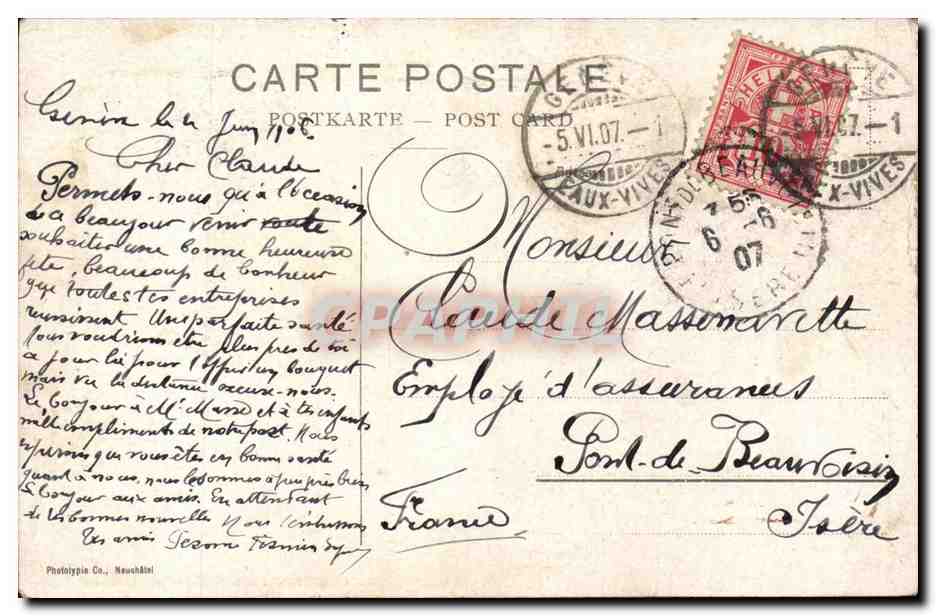 CARTE POSTALE
POSTKARTE — POST CARD
GENÈVE
-5.VI.07.-1
EAUX-VIVES
HELVETIA
10
GENÈVE
5.VI.07.-1
EAUX-VIVES
PONT-DE-BEAUVOISIN
6 -6
07
ISERE
Genève le Juin 190
Cher Claude
Permets-nous qu'à l'occasion
de ce beau jour venir
souhaiter une bonne heureuse
fête, beaucoup de bonheur
que toutes tes entreprises
reussissent Une parfaite santé
Nous voudrions être plus près de toi
ce jour là pour t'offrir un bouquet
mais vu la distance excuse-nous.
Le bonjour à Mr Masse et à tes enfants
mille compliments de notre part. Nous
esperons que vous êtes en bonne santé
quant à nous, nous sommes à peu près bien
Le bonjour aux amis. En attendant
de tes bonnes nouvelles Nous
tes amis
Monsieur
Claude Massonavette
Employé d'assurances
Pont-de-Beauvoisin
Isère
France
CPAPHIL
Phototypie Co., Neuchâtel